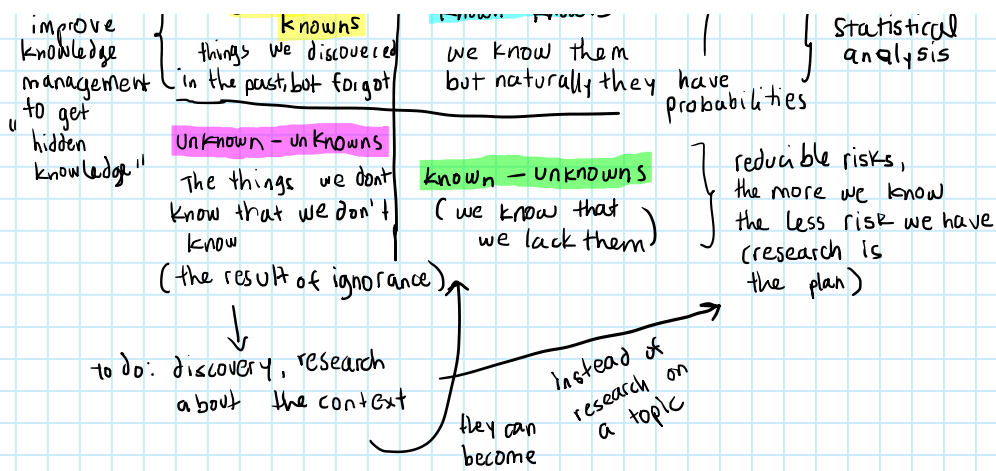 improve
knowledge
management
"to get
hidden
knowledge"
knowns
things we discovered
in the past, but forgot
we know them
but naturally they have
probabilities
statistical
analysis
unknown - unknowns
The things we dont
know that we don't
know
(the result of ignorance)
known - unknowns
(we know that
we lack them)
reducible risks,
the more we know
the less risk we have
(research is
the plan)
to do: discovery, research
about the context
they can
become
instead of
research on
a topic